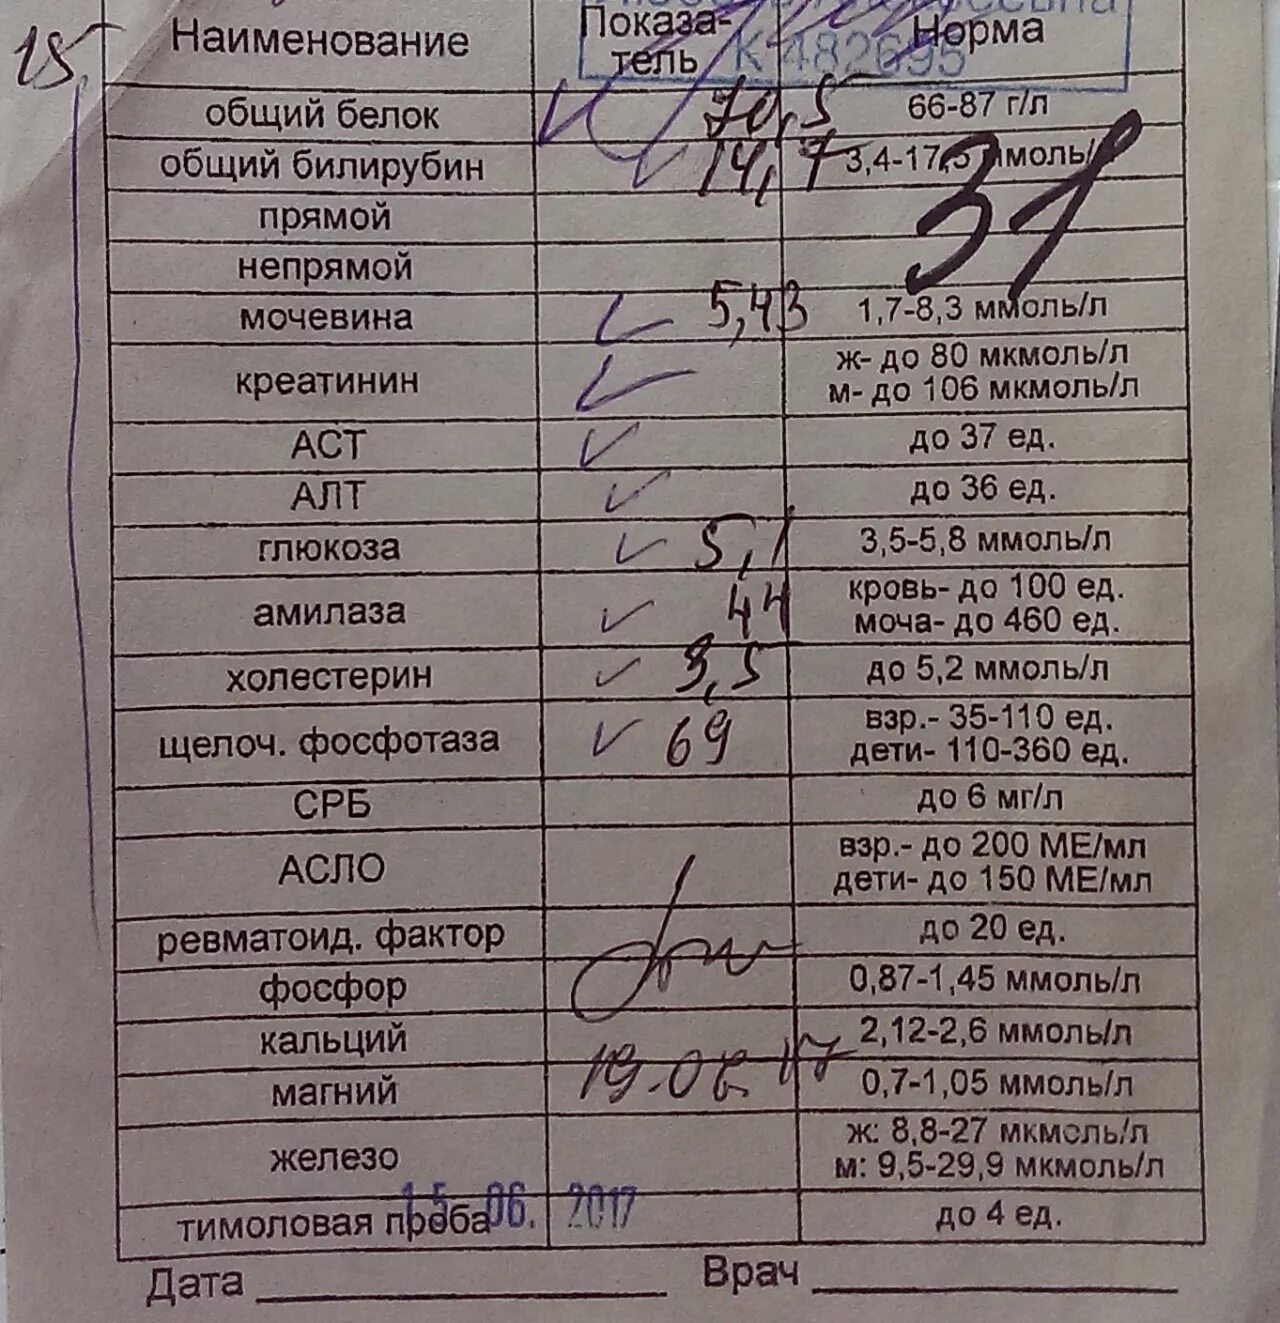 15
Наименование Показа- тель Норма
К 482695
общий белок 70,5 66-87 г/л
общий билирубин 14,7 3,4-17,5 ммоль/
31
прямой
непрямой
мочевина 5,43 1,7-8,3 ммоль/л
креатинин ж- до 80 мкмоль/л
м- до 106 мкмоль/л
АСТ до 37 ед.
АЛТ до 36 ед.
глюкоза 5,1 3,5-5,8 ммоль/л
амилаза 44 кровь- до 100 ед.
моча- до 460 ед.
холестерин 3,5 до 5,2 ммоль/л
щелоч. фосфотаза 69 взр.- 35-110 ед.
дети- 110-360 ед.
СРБ до 6 мг/л
АСЛО взр.- до 200 МЕ/мл
дети- до 150 МЕ/мл
ревматоид. фактор до 20 ед.
фосфор 0,87-1,45 ммоль/л
кальций 2,12-2,6 ммоль/л
19.06.17
магний 0,7-1,05 ммоль/л
железо ж: 8,8-27 мкмоль/л
м: 9,5-29,9 мкмоль/л
15 06. 2017
тимоловая проба до 4 ед.
Дата Врач